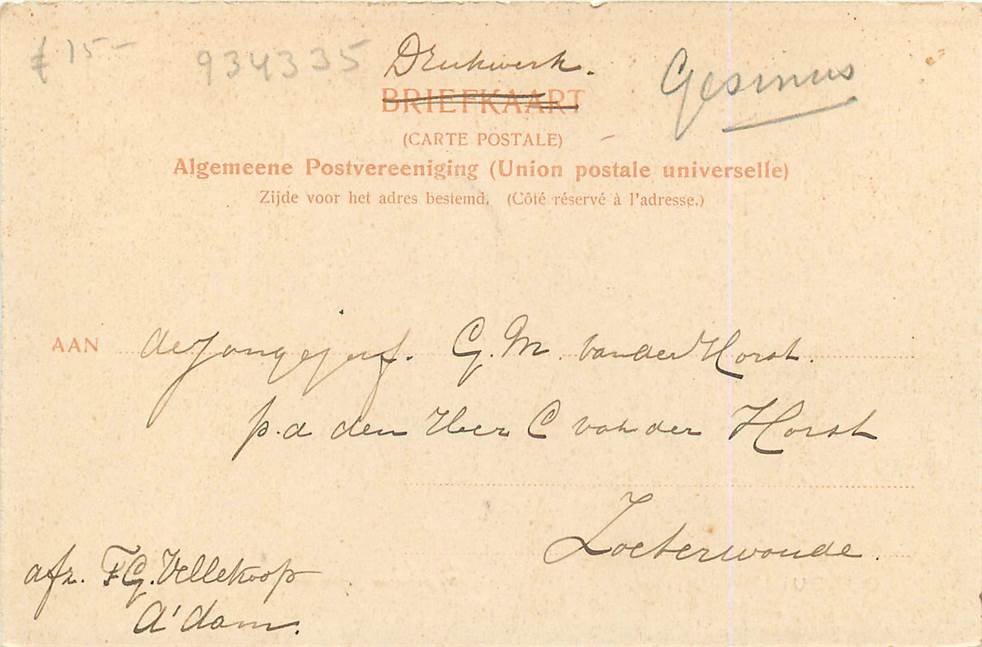 £ 15-
934335
Drukwerk.
Gesinus
BRIEFKAART
(CARTE POSTALE)
Algemeene Postvereeniging (Union postale universelle)
Zijde voor het adres bestemd. (Côté réservé à l'adresse.)
AAN de Jongejuf. G. M. van der Horst.
p.a den Heer C van der Horst
Zoeterwoude.
afz. F G. Vellekoop
A'dam.